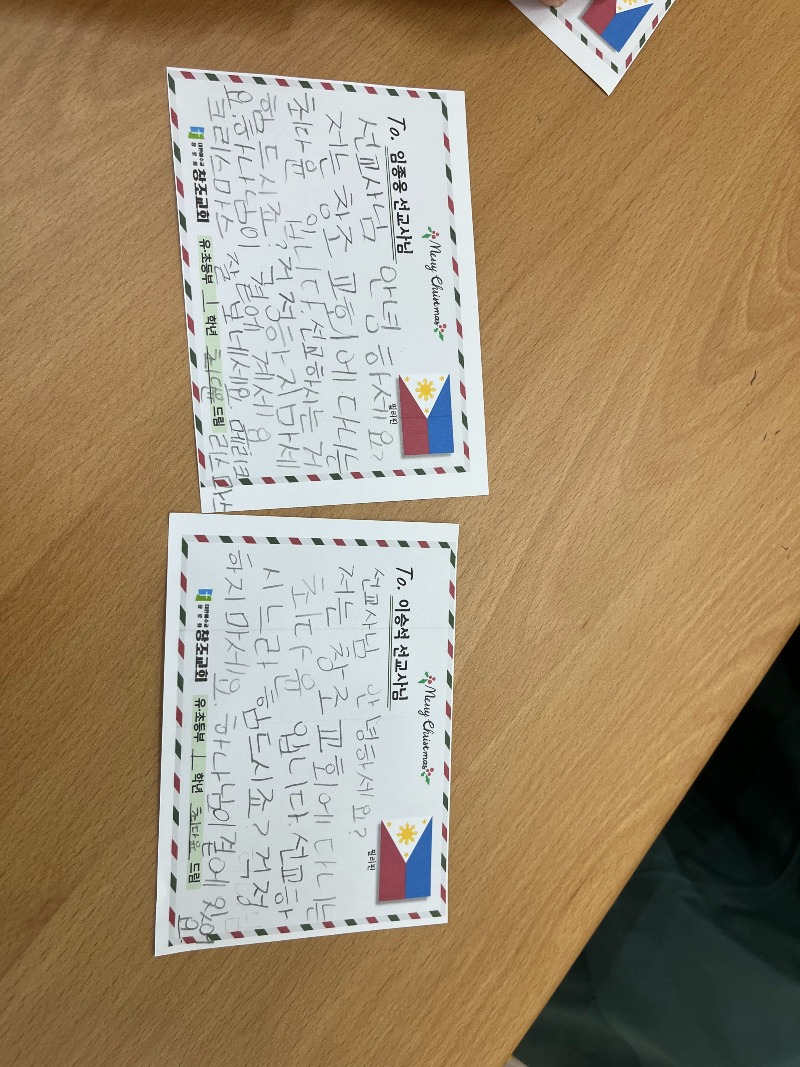 Merry Christmas
To. 임종웅 선교사님
필리핀
선교사님 안녕 하세요?
저는 창조 교회에 다니는
최다윤 입니다. 선교하시는 거
힘드시죠? 걱정하지마세
요. 하나님이 곁에 계세요
크리스마스 잘 보내세요 메리크
리스마스
대한예수교
장로회
창조교회
유·초등부 1 학년 최다윤 드림
Merry Christmas
To. 이승석 선교사님
필리핀
선교사님 안녕하세요?
저는 창조 교회에 다니는
최다윤 입니다. 선교하
시느라 힘드시죠? 걱정
하지 마세요. 하나님이 곁에 있어
요
대한예수교
장로회
창조교회
유·초등부 1 학년 최다윤 드림